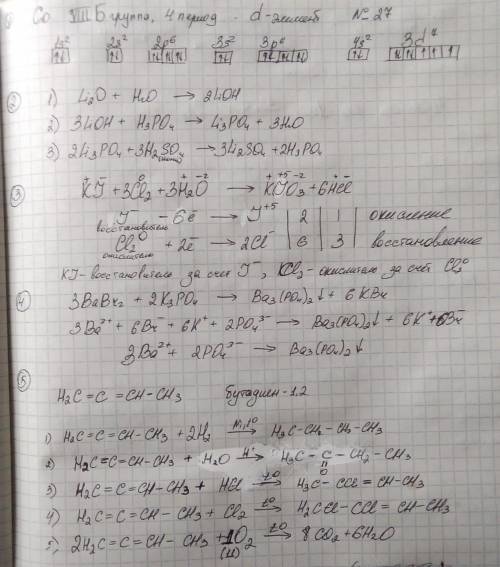 Co VIII Б группа, 4 период - d-элемент №27
1s² 2s² 2p⁶ 3s² 3p⁶ 4s² 3d⁷
② 1) Li₂O + H₂O → 2LiOH
2) 3LiOH + H₃PO₄ → Li₃PO₄ + 3H₂O
3) 2Li₃PO₄ + 3H₂SO₄ → 3Li₂SO₄ + 2H₃PO₄
③ KJ⁻ + 3Cl₂⁰ + 3H₂O → KJO₃ + 6HCl
J⁻ - 6e̅ → J⁺⁵ | 2 | 1 | окисление
восстановитель
Cl₂⁰ + 2e̅ → 2Cl⁻ | 6 | 3 | восстановление
окислитель
KJ - восстановитель за счет J⁻, KCl₃ - окислитель за счет Cl₂⁰
④ 3BaBr₂ + 2K₃PO₄ → Ba₃(PO₄)₂↓ + 6KBr
3Ba²⁺ + 6Br⁻ + 6K⁺ + 2PO₄³⁻ → Ba₃(PO₄)₂↓ + 6K⁺ + 6Br⁻
3Ba²⁺ + 2PO₄³⁻ → Ba₃(PO₄)₂↓
⑤
H₂C = C = CH - CH₃ бутадиен - 1,2
1) H₂C = C = CH - CH₃ + 2H₂ →(Ni, t⁰) H₃C - CH₂ - CH₂ - CH₃
2) H₂C = C = CH - CH₃ + H₂O →(H⁺) H₃C - C - CH₂ - CH₃
O
3) H₂C = C = CH - CH₃ + HCl →(t⁰) H₃C - CCl = CH - CH₃
4) H₂C = C = CH - CH₃ + Cl₂ →(t⁰) H₂CCl - CCl = CH - CH₃
5) 2H₂C = C = CH - CH₃ + 1O₂ →(t⁰) 8CO₂ + 6H₂O
(11)